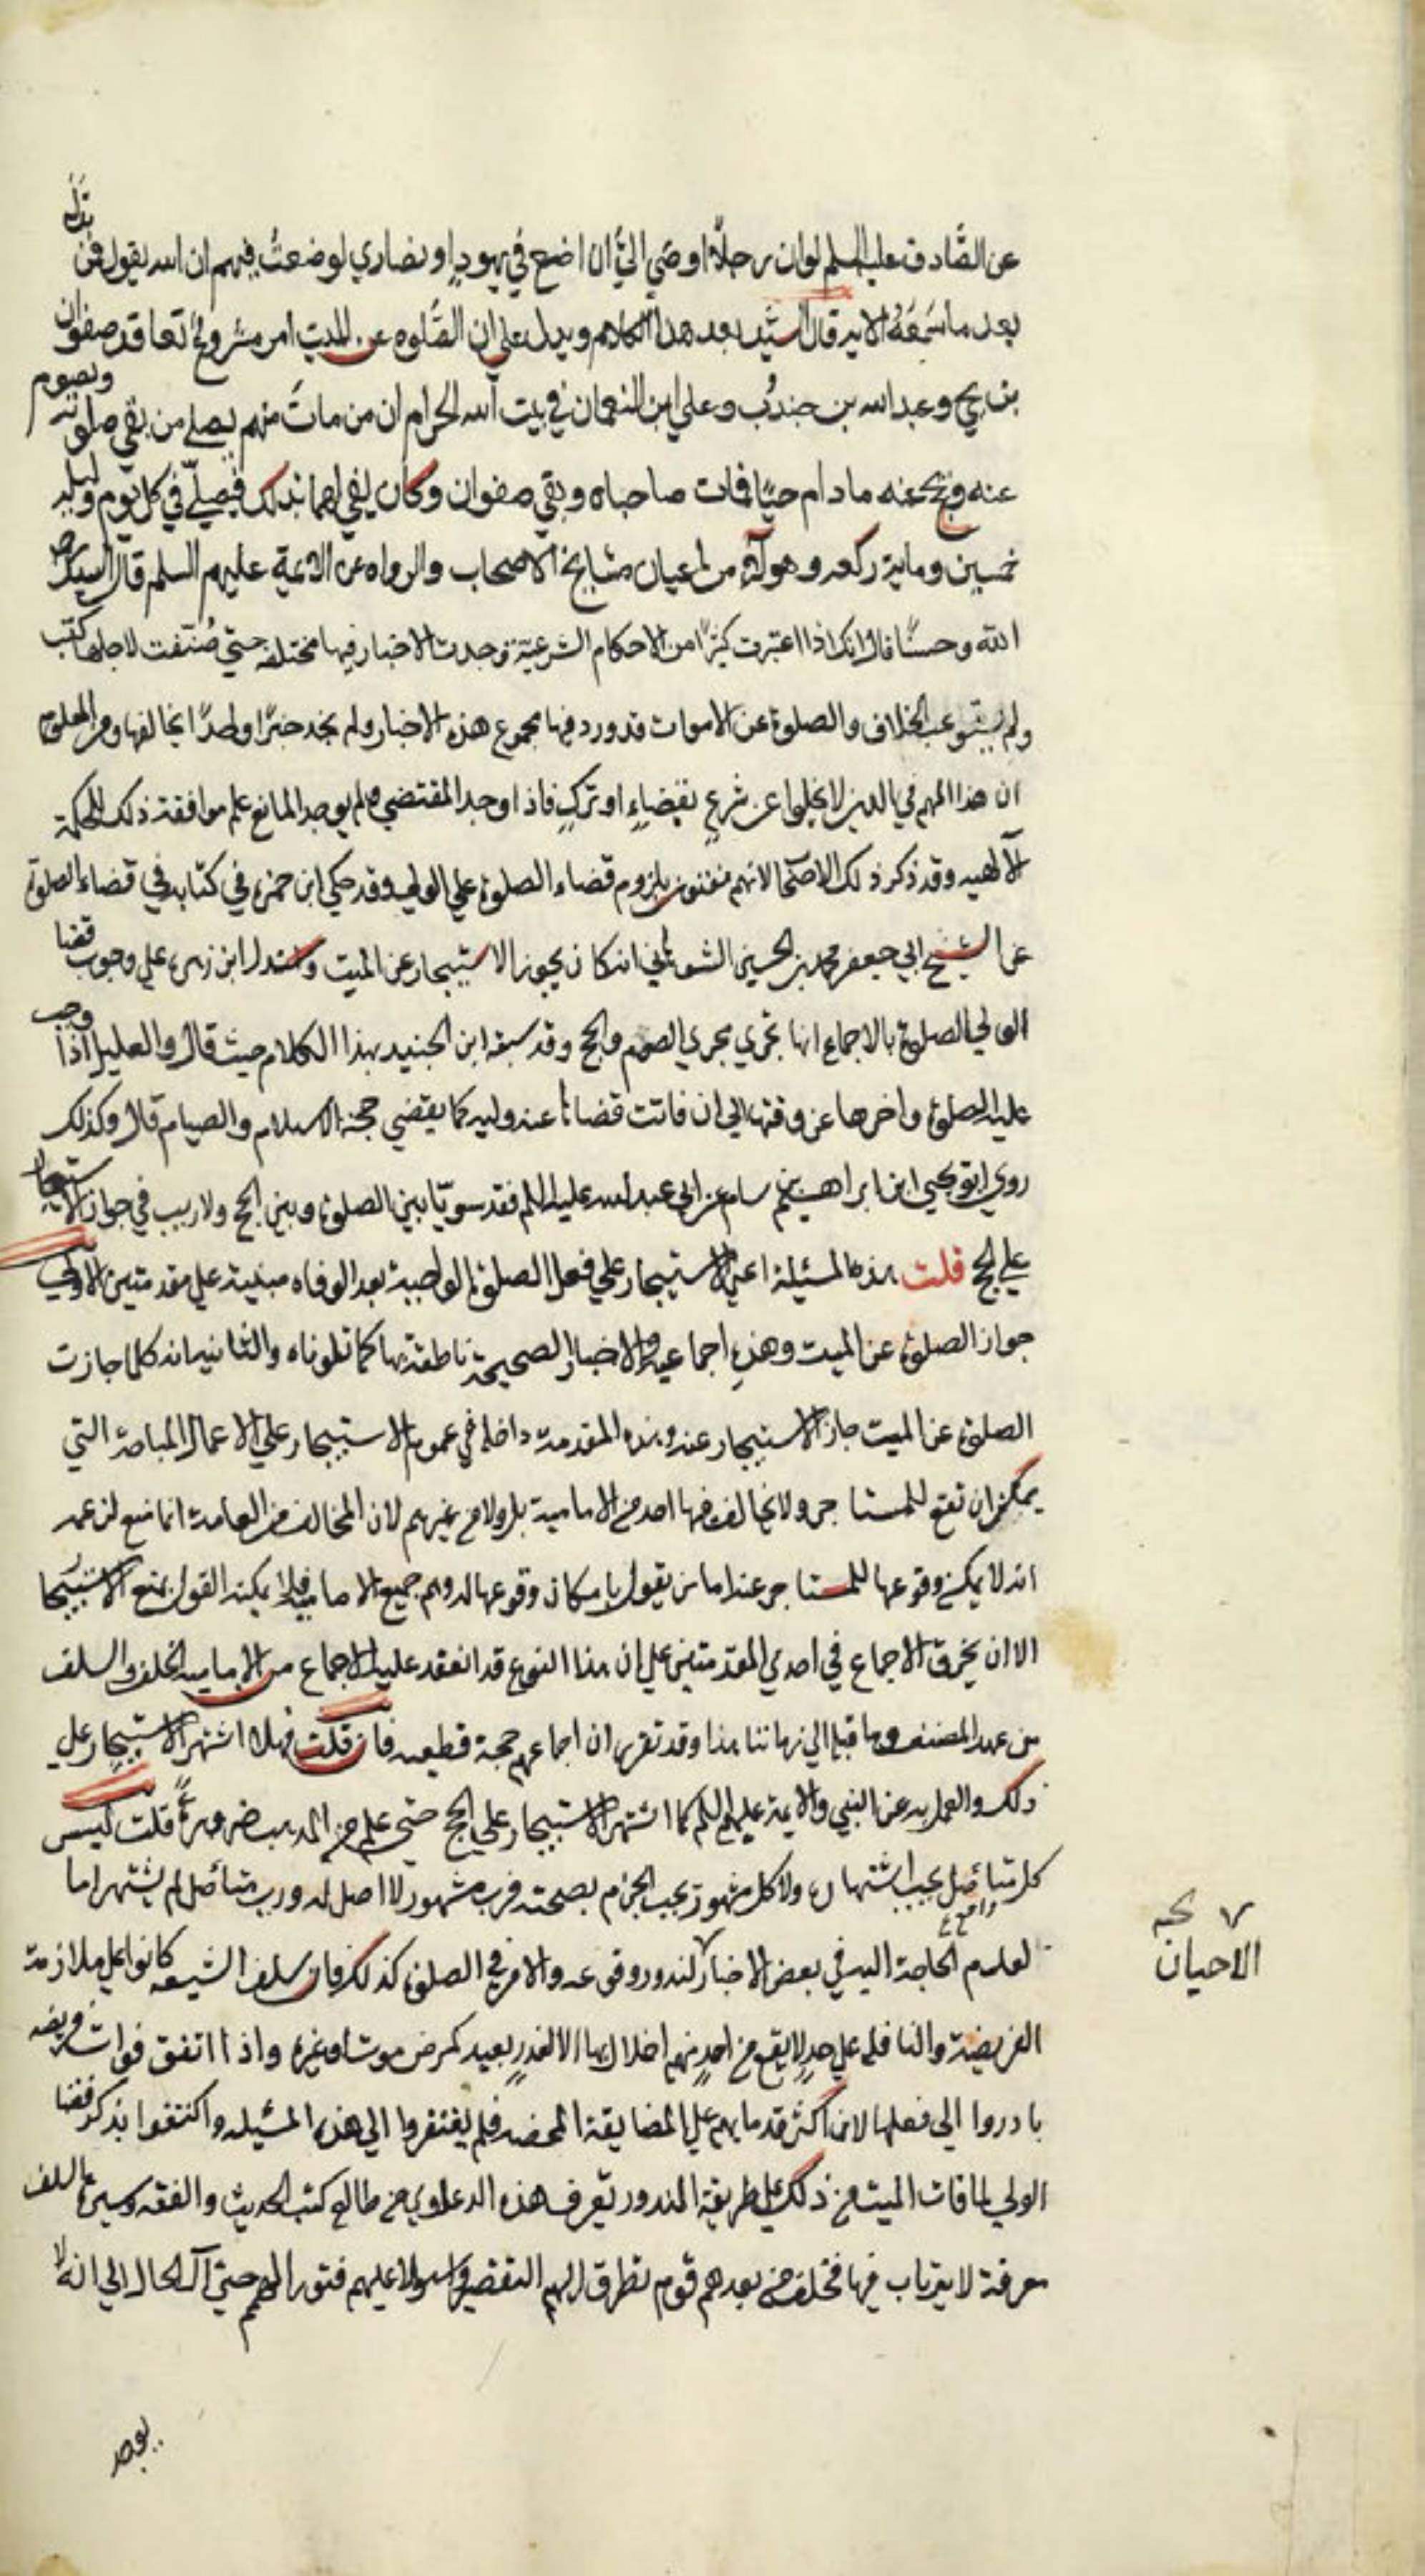 عن الصادق عليه السلم لو ان رجلا اوصي الي ان اضع في يهود او نصاري لوضعت فيهم ان الله يقول فمن بدله
بعد ما سمعه الاية قال السيد بعد هذا الكلام ويدل علي ان الصلوه عن الميت امر مشروع تعاقد صفوان
بن يحي وعبد الله بن جندب وعلي ابن النعمان في بيت الله الحرام ان من مات منهم يصلي من بقي صلوته ويصوم
عنه ويحج عنه ما دام حيا فمات صاحباه وبقي صفوان وكان يفي لهما بذلك فيصلي في كل يوم وليلة
خمسين وماية ركعه وهولاء من اعيان مشايخ الاصحاب والرواه عن الائمة عليهم السلم قال السيد رحمه
الله وحسنا قال انك اذا اعتبرت كثيرا من الاحكام الشرعية وجدت الاخبار فيها مختلفه حتي صنفت لاجلها كتب
ولم يستوعب الخلاف والصلوة عن الاموات قد ورد فيها مجموع هذه الاخبار ولم نجد خبرا واحدا يخالفها ومن المعلوم
ان هذا المهم في الدين لا يخلوا عن شرع بقضاء او ترك فاذا وجد المقتضي ولم يوجد المانع علم موافقة ذلك للحكمة
الالهيه وقد ذكر ذلك الاصحاب لانهم مفتون بلزوم قضاء الصلوة علي الولي وقد حكي ابن حمزه في كتابه في قضاء الصلوة
عن الشيخ ابي جعفر محمد بن الحسين الشوهاني انه كان يجوز الاستيجار عن الميت واستدل ابن زهره علي وجوب قضا
الولي الصلوة بالاجماع انها تجري مجري الصوم والحج وقد سبقه ابن الجنيد بهذا الكلام حيث قال والعليل اذا وجب
عليه الصلوة واخرها عن وقتها الي ان فاتت قضاها عنه وليه كما يقضي حجة الاسلام والصيام قال وكذلك
روي ابو يحيي ابن ابراهيم بن سام عن ابي عبد الله عليه السلم فقد سويا بين الصلوة وبين الحج ولا ريب في جواز الاستيجار
علي الحج قلت هذه المسئيلة اعني الاستيجار علي فعل الصلوة الواجبة بعد الوفاه مبنية علي مقدمتين الاولي
جواز الصلوة عن الميت وهذه اجماعية والاخبار الصحيحة ناطقة بها كما تلوناه والثانيه انه كلما جازت
الصلوة عن الميت جاز الاستيجار عنه وهذه المقدمة داخلة في عموم الاستيجار علي الاعمال المباحة التي
يمكن ان تقع للمستاجر ولا يخالف فيها احد من الامامية بل ولا من غيرهم لان المخالف من العامة انما منع لزعمه
انه لا يمكن وقوعها للمستاجر عنه اما من يقول بامكان وقوعها له وهم جميع الامامية فلا يمكنه القول بمنع الاستيجار
الا ان يخرق الاجماع في احدي المقدمتين علي ان هذا النوع قد انعقد عليه الاجماع من الامامية الخلف والسلف
من عهد المصنف وما قبله الي زماننا هذا وقد تقرر ان اجماعهم حجة قطعيه فان قلت فهلا اشتهر الاستيجار علي
ذلك والعمل به عن النبي والايمة عليهم السلم كما اشتهر الاستيجار علي الحج حتي علم من المذهب ضرورة قلت ليس
كل متاصل يجب اشتهاره ولا كل مشهور يجب الجزم بصحته فرب مشهور لا اصل له ورب متاصل لم يشتهر اما
لعدم الحاجة اليه في بعض الاخبار لندور وقوعه والامر في الصلوة كذلك فان سلف الشيعه كانوا علي ملازمة
الفريضة والنافله علي حد لا يقع من احد منهم اخلال بها الا لعذر بعيد كمرض موت او غيره واذا اتفق فوات فريضه
بادروا الي فعلها لان اكثر قدمايهم علي المضايقة المحضه فلم يفتقروا الي هذه المسئيله واكتفوا بذكر قضا
الولي لما فات الميت من ذلك علي طريقة الندور تعرف هذه الدعاوي من طالع كتب الحديث والفقه وسيرة السلف
معرفة لا يرتاب فيها فخلف من بعدهم قوم تطرق اليهم التقصير واستولا عليهم فتور الهمم حتي آل الحال الي انه لا
الاحيان